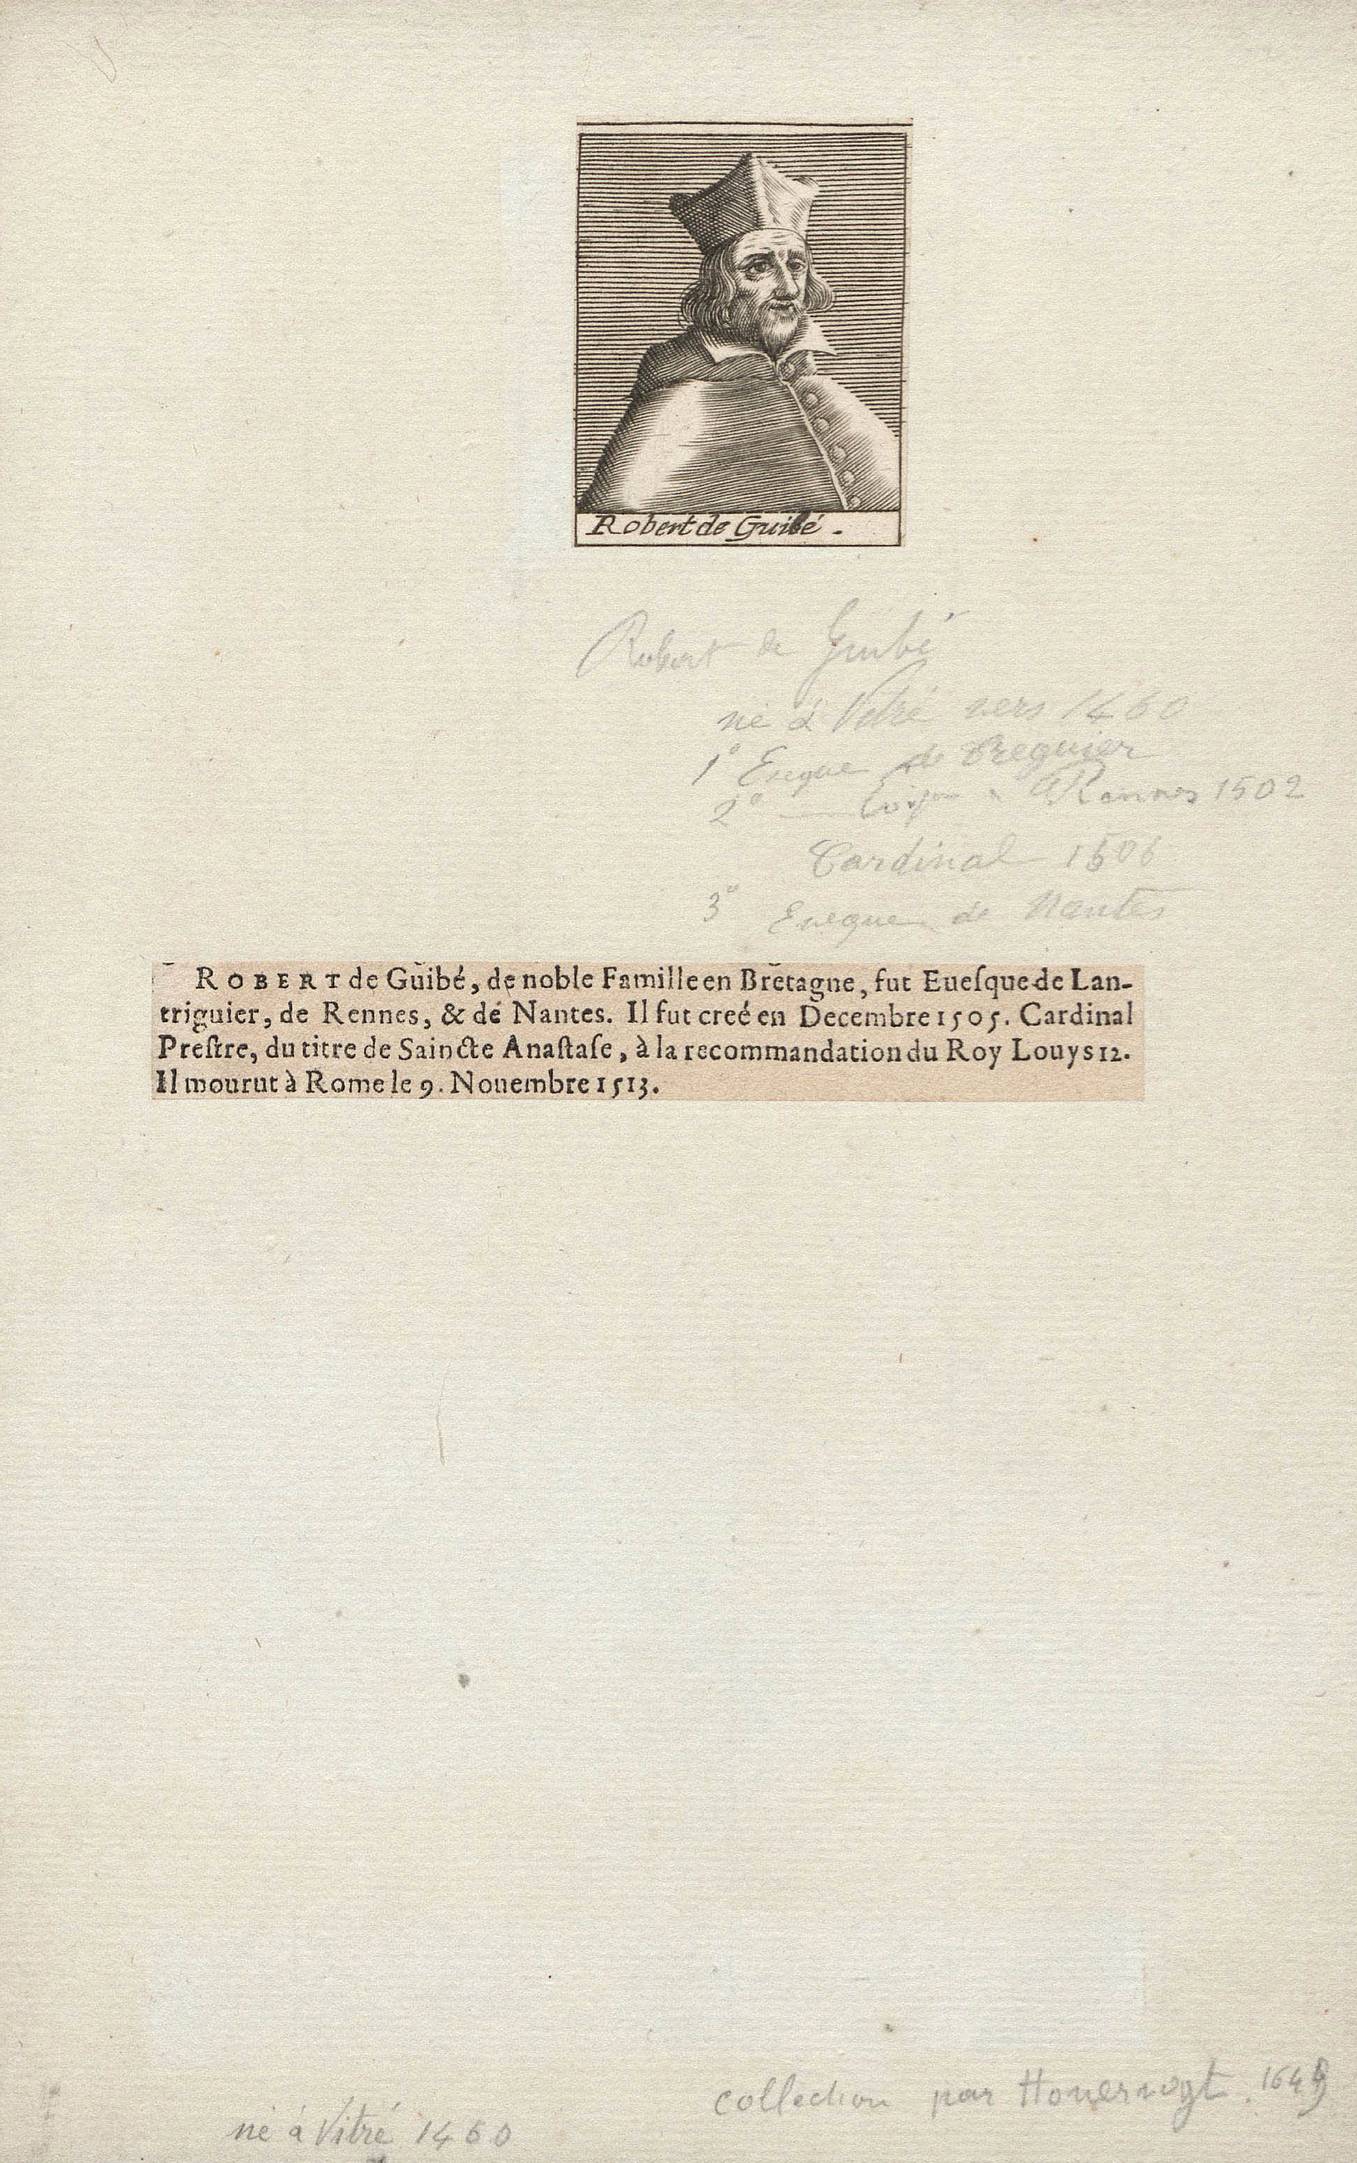 Robert de Guibé .
Robert de Guibé
né à Vitré vers 1460
1° Eveque de Treguier
2° — Rennes 1502
Cardinal 1506
3° Eveque de Nantes
ROBERT de Guibé, de noble Famille en Bretagne, fut Eueſque de Lan-
triguier, de Rennes, & de Nantes. Il fut creé en Decembre 1505. Cardinal
Preſtre, du titre de Saincte Anaſtaſe, à la recommandation du Roy Louys 12.
Il mourut à Rome le 9. Nouembre 1513.
collection par Honervogt.
né à Vitré 1460